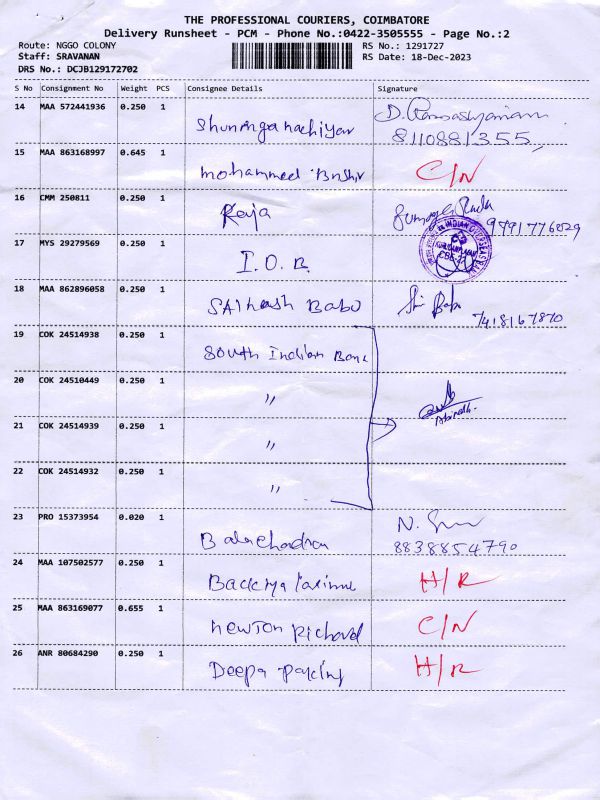 THE PROFESSIONAL COURIERS, COIMBATORE
Delivery Runsheet - PCM - Phone No.:0422-3505555 - Page No.:2
Route: NGGO COLONY
Staff: SRAVANAN
DRS No.: DCJB129172702
RS No.: 1291727
RS Date: 18-Dec-2023
S No Consignment No Weight PCS Consignee Details Signature
14 MAA 572441936 0.250 1
8110881355
15 MAA 863168997 0.645 1 mohammed C/N
16 CMM 250811 0.250 1 Raja
9791776029
17 MYS 29279569 0.250 1 I.O.B.
INDIAN OVERSEAS
18 MAA 862896058 0.250 1 SAIhash Babu
7418167870
19 COK 24514938 0.250 1 South Indian Bank
20 COK 24510449 0.250 1 "
21 COK 24514939 0.250 1 "
22 COK 24514932 0.250 1 "
23 PRO 15373954 0.020 1 Balachadran N.
8838854790
24 MAA 107502577 0.250 1 H/R
25 MAA 863169077 0.655 1 newton Richard C/N
26 ANR 80684290 0.250 1 Deepa H/R